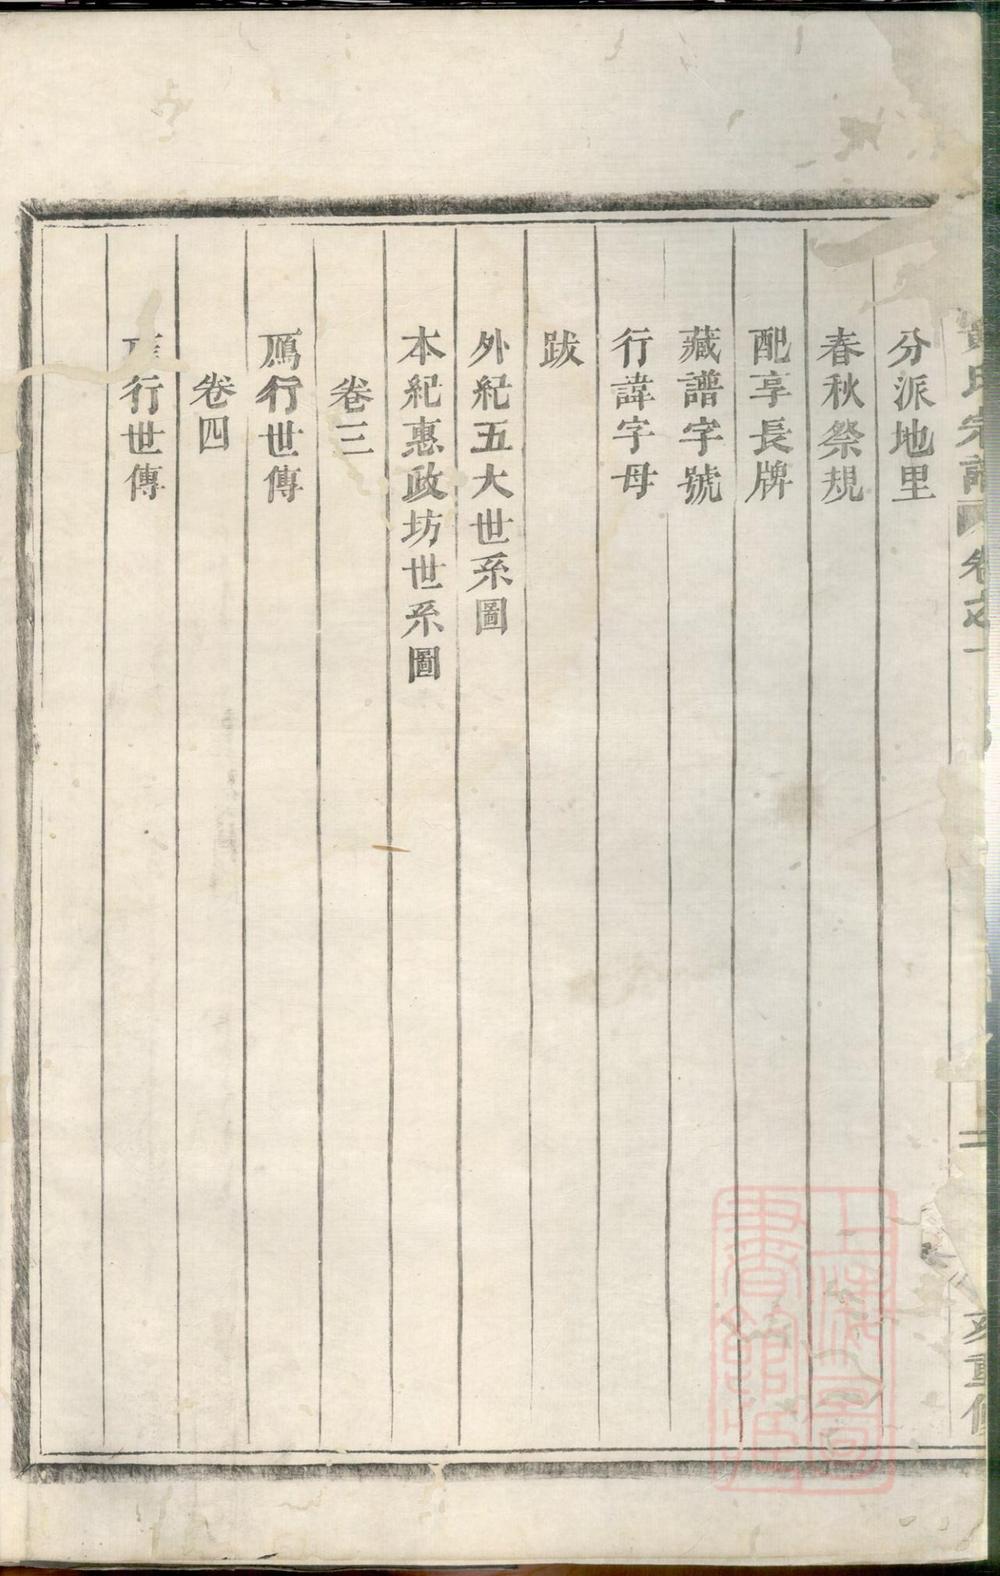 氏宗譜 卷之一 二 亥重修
分派地里
春秋祭規
配享長牌
藏譜字號
行諱字母
跋
外紀五大世系圖
本紀惠政坊世系圖
卷三
鴈行世傳
卷四
行世傳
上海圖
書館藏